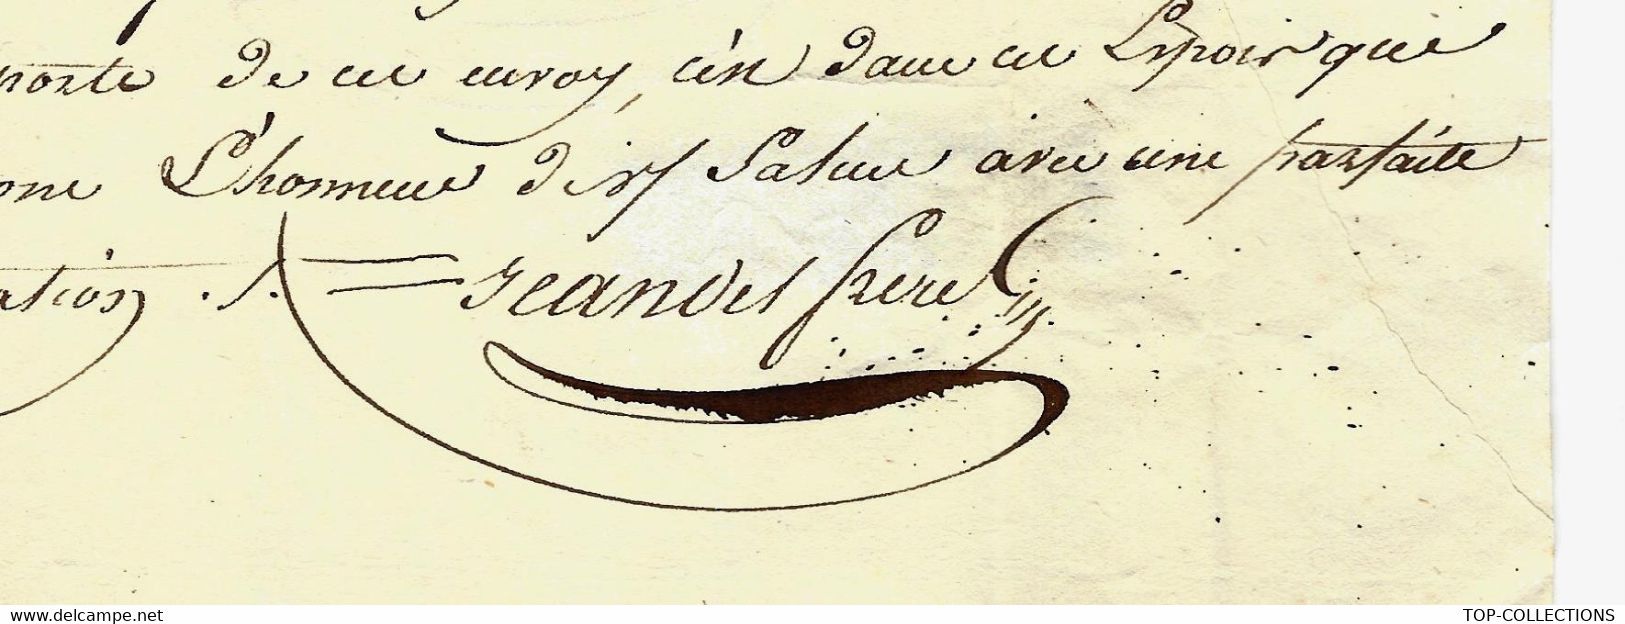 porte de cet envoy, c'est dans cet Espoir que
L'honneur de Saluer avec une parfaite
ation . /. = Jeandel frere
www.delcampe.net
kin
TOP-COLLECTIONS